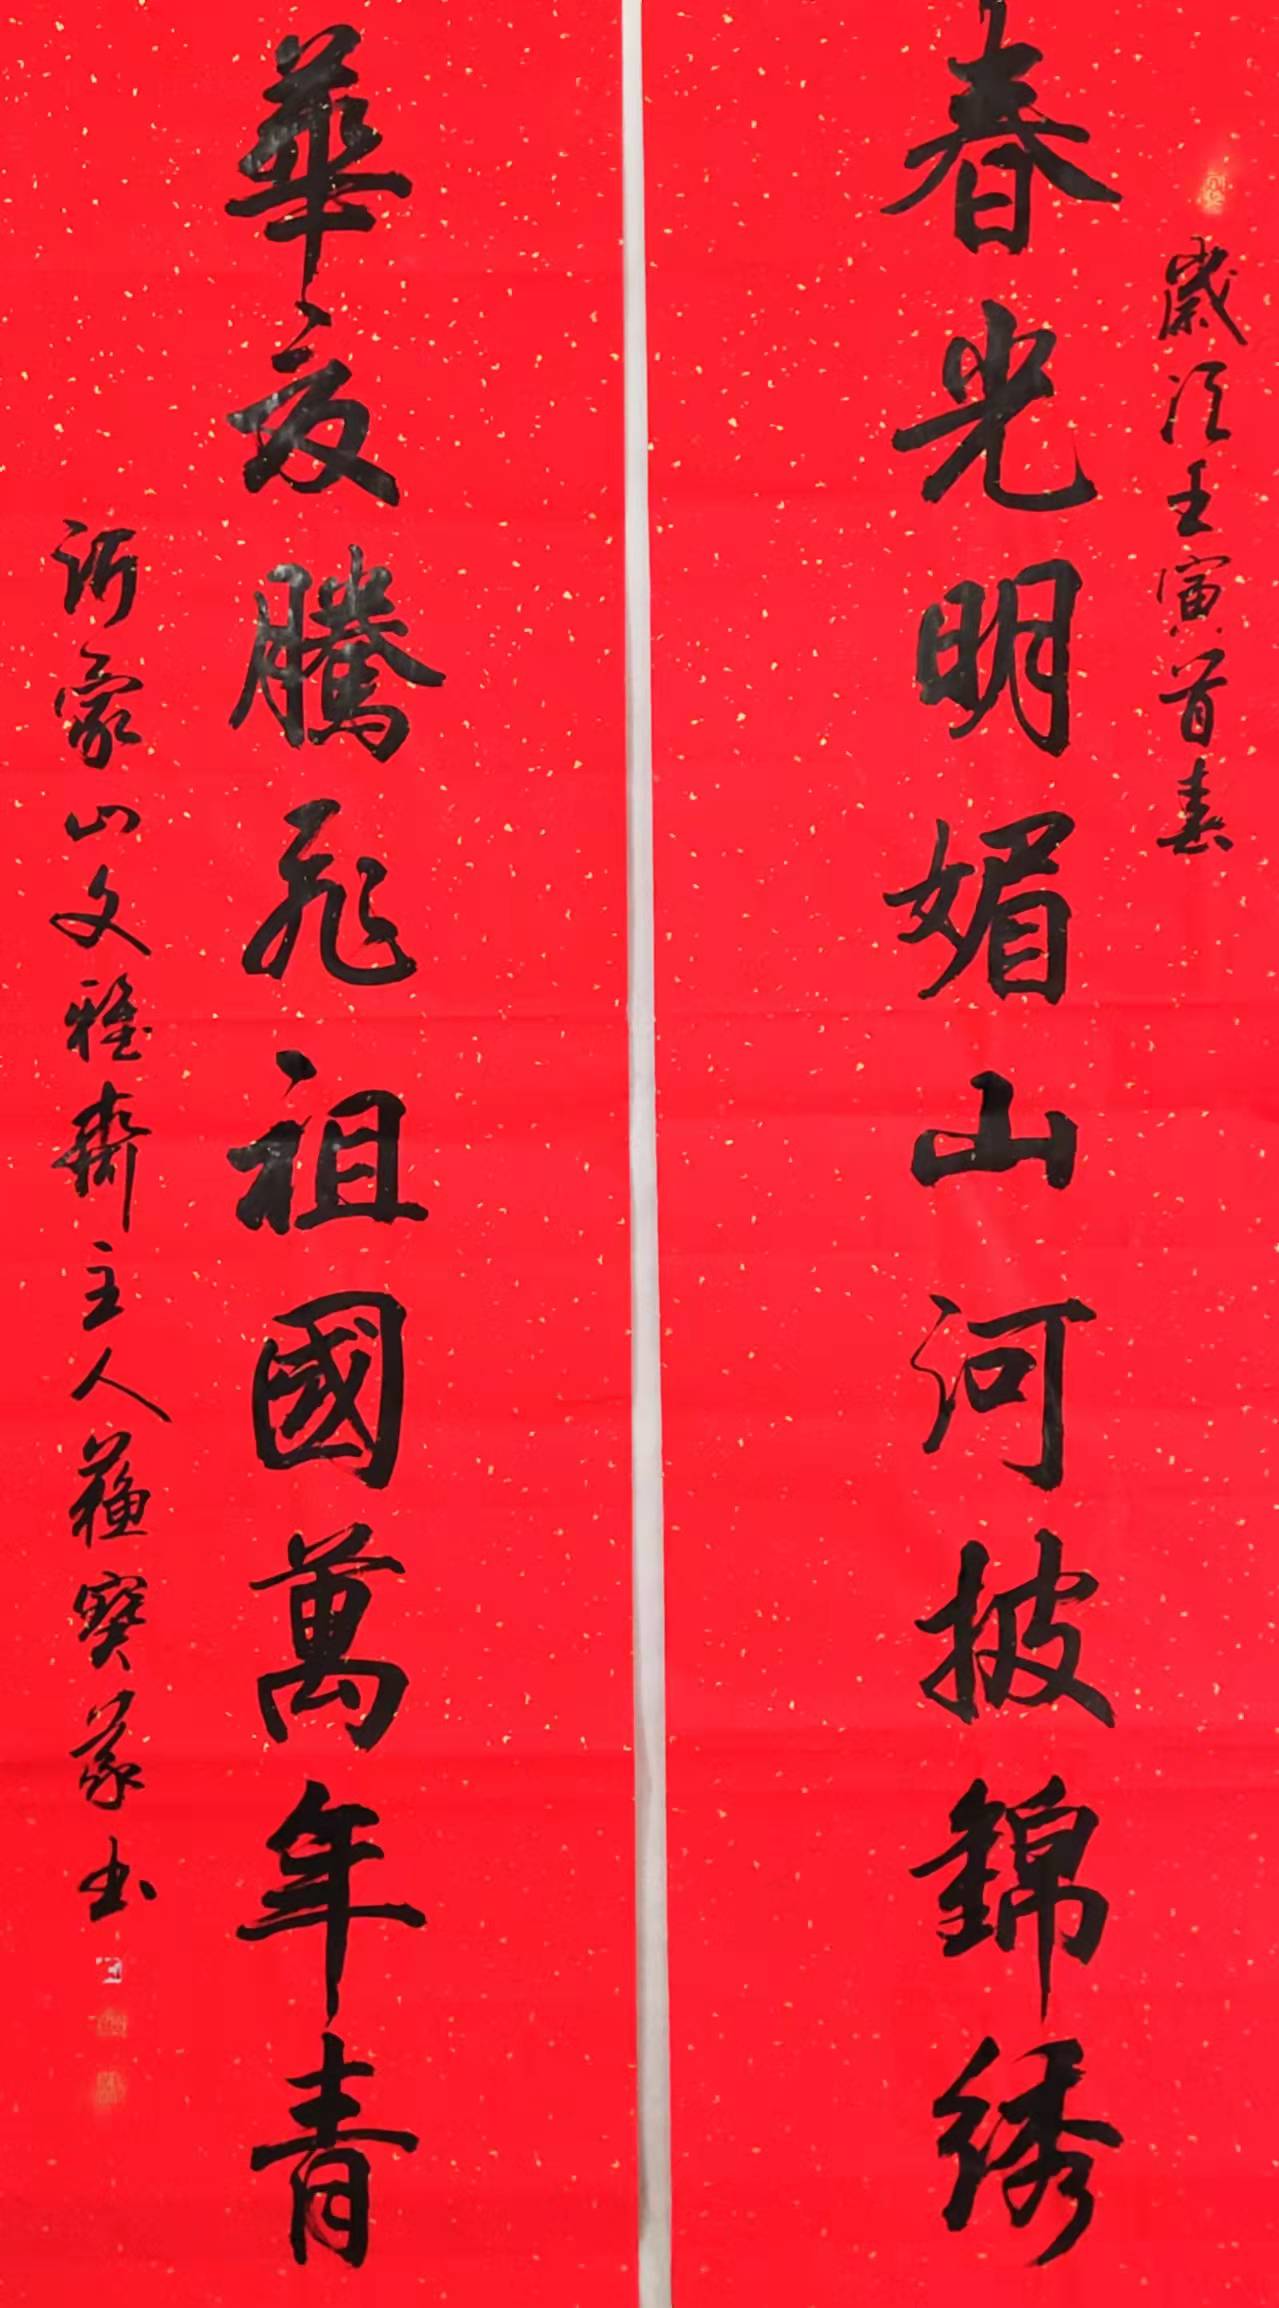 歲次壬寅首春
春光明媚山河披錦绣
華夏騰飛祖國萬年青
沂蒙山文雅齋主人蘇寶蒙书